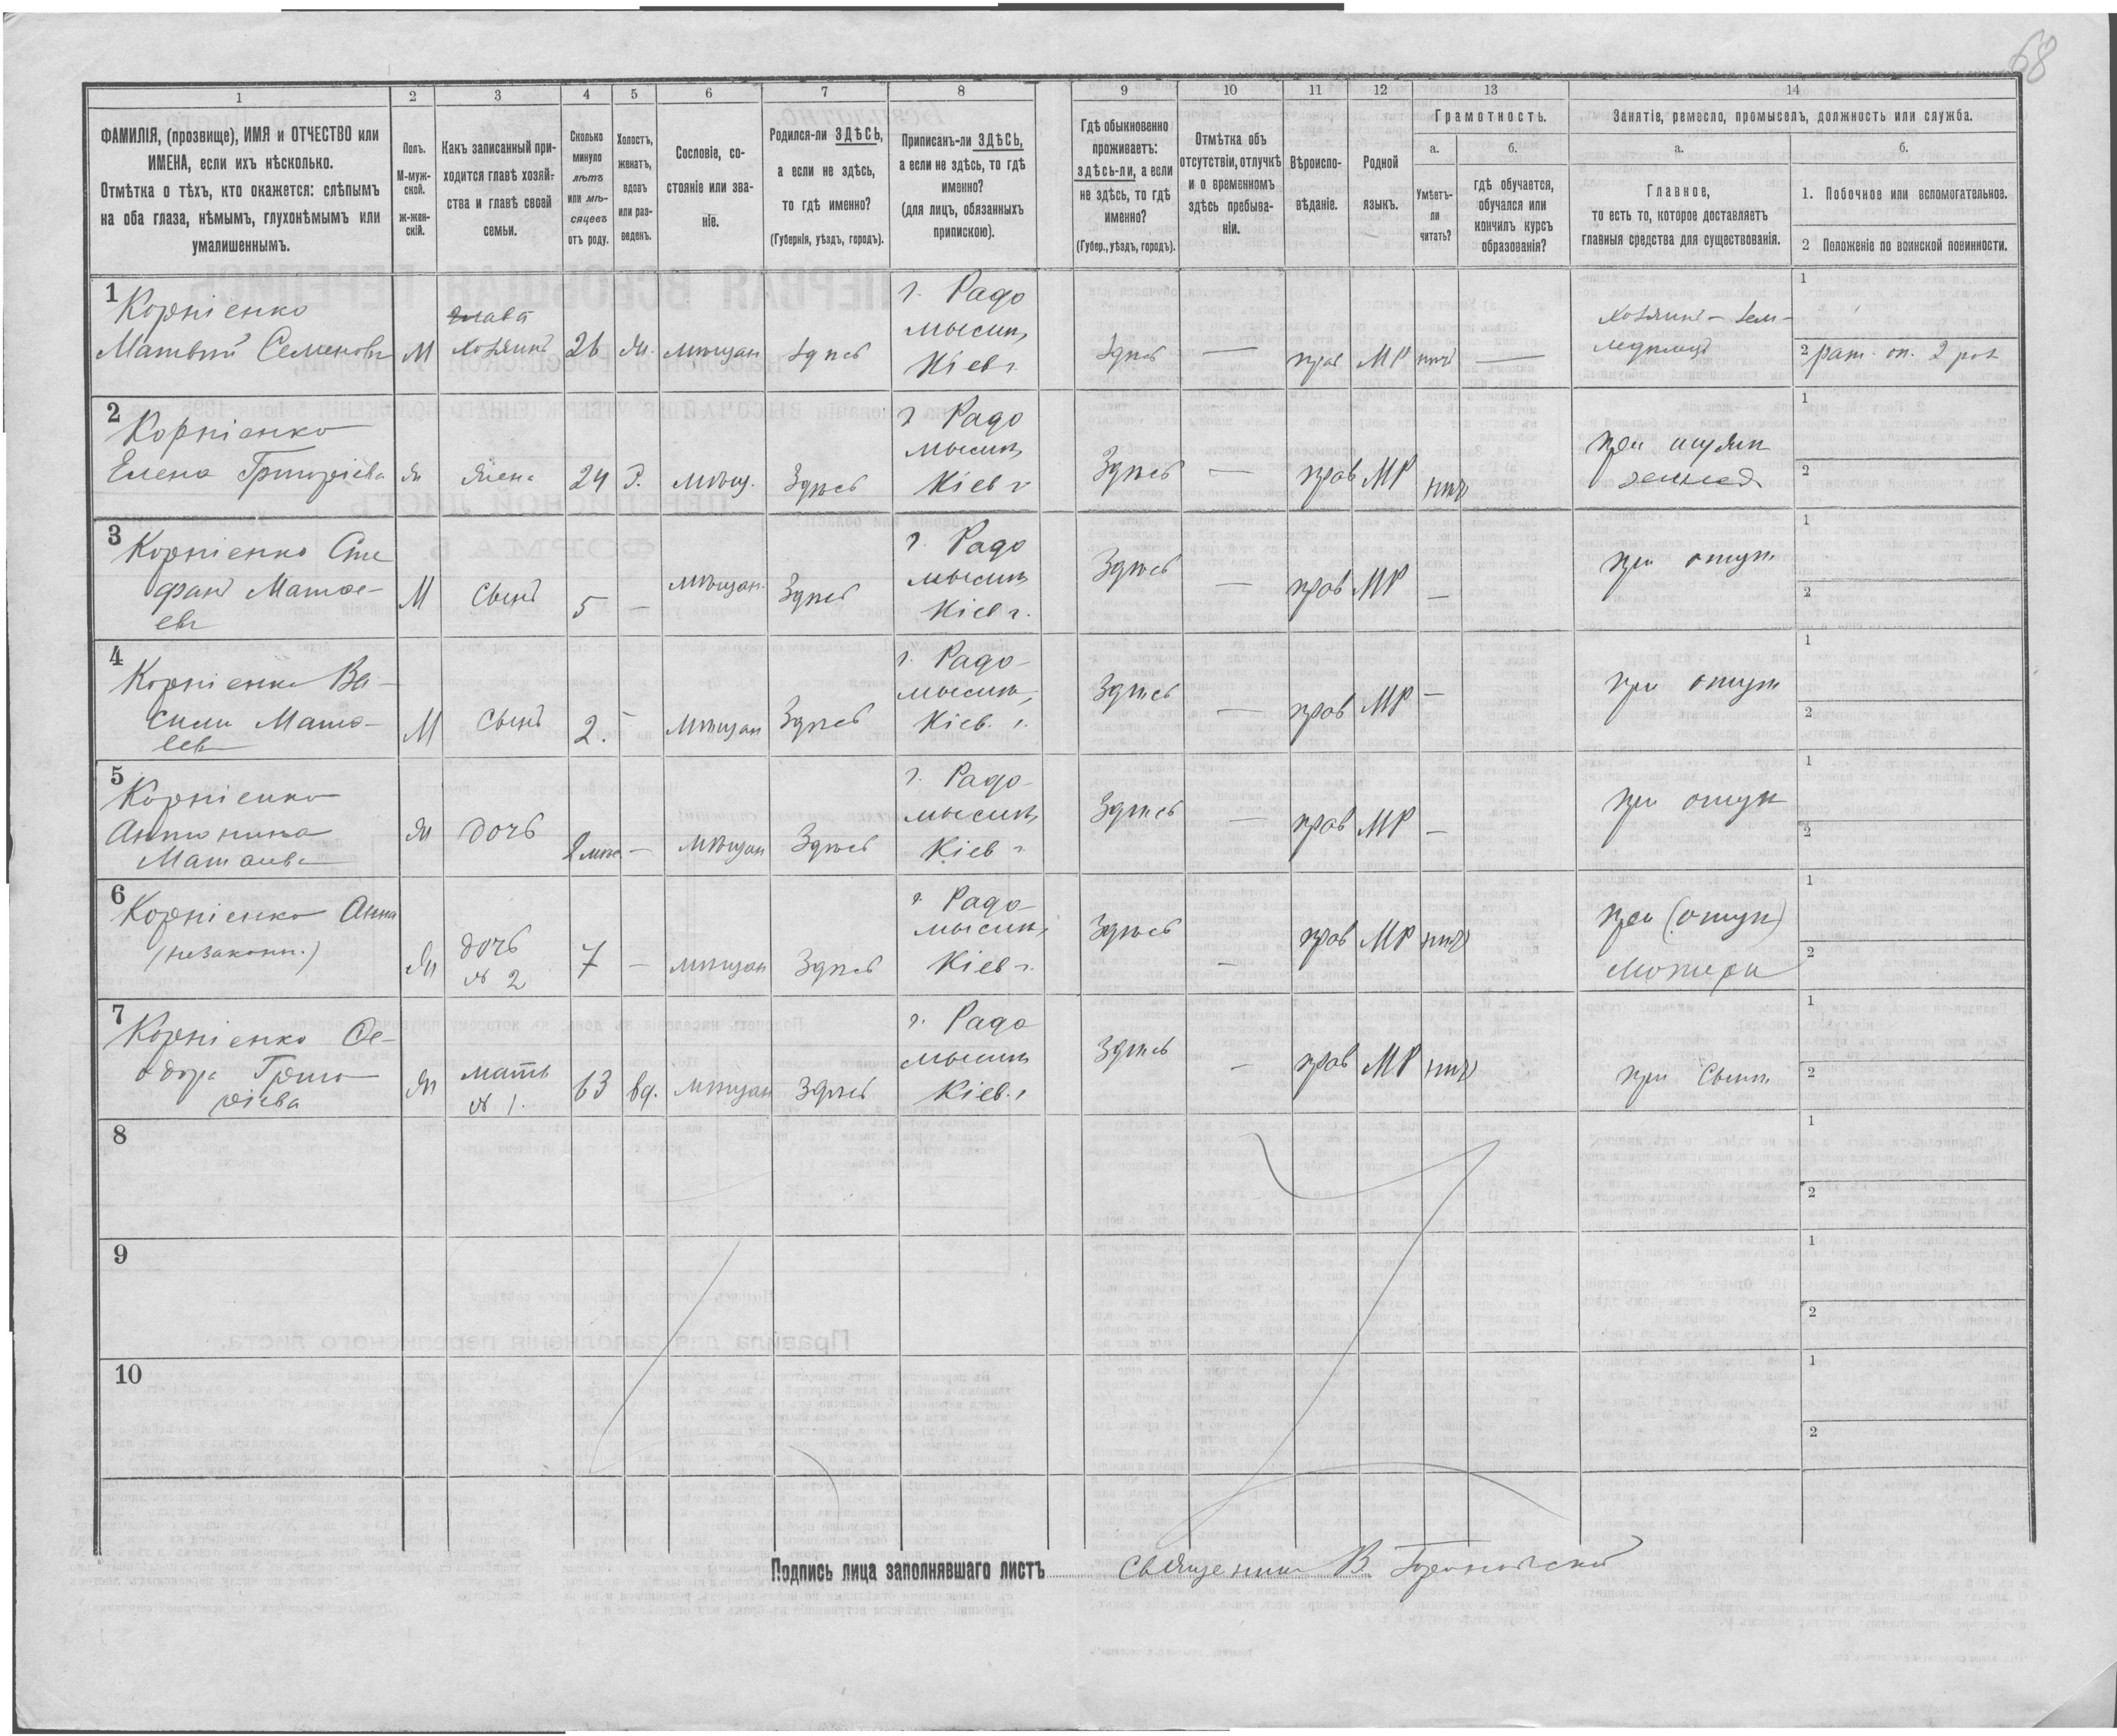 68
1 2 3 4 5 6 7 8 9 10 11 12 13 14
ФАМИЛІЯ, (прозвище), ИМЯ и ОТЧЕСТВО или
ИМЕНА, если ихъ нѣсколько.
Отмѣтка о тѣхъ, кто окажется: слѣпымъ
на оба глаза, нѣмымъ, глухонѣмымъ или
умалишеннымъ.
Полъ.
М-муж-
ской.
ж-жен-
скій.
Какъ записанный при-
ходится главѣ хозяй-
ства и главѣ своей
семьи.
Сколько
минуло
лѣтъ
или мѣ-
сяцевъ
отъ роду.
Холостъ,
женатъ,
вдовъ
или раз-
веденъ.
Сословіе, со-
стояніе или зва-
ніе.
Родился-ли ЗДѢСЬ,
а если не здѣсь,
то гдѣ именно?
(Губернія, уѣздъ, городъ).
Приписанъ-ли ЗДѢСЬ,
а если не здѣсь, то гдѣ
именно?
(для лицъ, обязанныхъ
припискою).
Гдѣ обыкновенно
проживаетъ:
здѣсь-ли, а если
не здѣсь, то гдѣ
именно?
(Губер., уѣздъ, городъ).
Отмѣтка объ
отсутствіи, отлучкѣ
и о временномъ
здѣсь пребыва-
ніи.
Вѣроиспо-
вѣданіе.
Родной
языкъ.
Грамотность.
а.
Умѣетъ-
ли
читать?
б.
гдѣ обучается,
обучался или
кончилъ курсъ
образованія?
Занятіе, ремесло, промыселъ, должность или служба.
а.
Главное,
то есть то, которое доставляетъ
главныя средства для существованія.
б.
1. Побочное или вспомогательное.
2 Положеніе по воинской повинности.
1
Корніенко
Матвѣй Семеновъ
М
глава
хозяинъ
26
Жн.
мѣщан
Здѣсь
г. Радо
мысль,
Кіев г.
Здѣсь
—
прав
МР
нѣтъ
—
Хозяинъ - зем-
ледѣлецъ
1
2 рат. оп. 2 раз
2
Корніенко
Елена Григоріева
Ж
Жена
24
З.
мѣщ.
Здѣсь
г Радо
мысль,
Кіев г
Здѣсь
—
прав
МР
нѣтъ
при мужѣ
землед.
1
2
3
Корніенко Сте
фанъ Матве-
евъ
М
Сынъ
5
—
мѣщан.
Здѣсь
г. Радо
мысль
Кіев г.
Здѣсь
—
прав
МР
—
при отцѣ
1
2
4
Корніенко Ва-
силій Матве-
евъ
М
Сынъ
2.
-
мѣщан
Здѣсь
г. Радо-
мысль,
Кіев. г.
Здѣсь
—
прав
МР
—
при отцѣ
1
2
5
Корніенко
Антонина
Матвѣева
Ж
дочь
2 мѣс.
—
мѣщан
Здѣсь
г. Радо-
мысль,
Кіев г
Здѣсь
—
прав
МР
—
при отцѣ
1
2
6
Корніенко Анна
(незаконн.)
Ж
дочь
№ 2
7
—
мѣщан
Здѣсь
г Радо-
мысль,
Кіев г.
Здѣсь
—
прав
МР
нѣтъ
при (отцѣ)
матери
1
2
7
Корніенко Ѳе-
одора Григо
ріева
Ж
мать
№ 1.
63
вд.
мѣщан
Здѣсь
г. Радо
мысль
Кіев. г
Здѣсь
-
прав
МР
нѣтъ
при Сынѣ
1
2
8
1
2
9
1
2
10
1
2
Подпись лица заполнявшаго листъ Священник В.